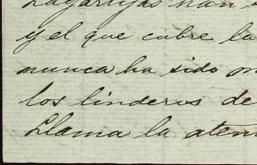 Lagartijas han
y el que cubre la
nunca ha sido
los linderos de
Llama la aten